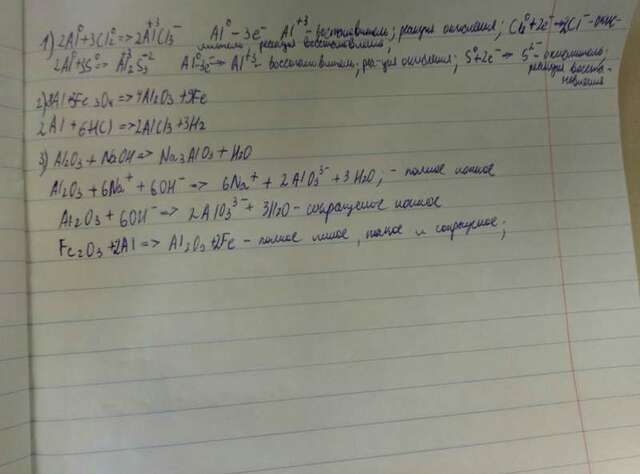 1) 2Al⁰+3Cl₂⁰=>2Al⁺³Cl₃⁻ Al⁰-3e⁻ Al⁺³-восстановитель; реакция окисления; Cl₂⁰+2e⁻→2Cl⁻-окис-
литель, реакция восстановления;
2Al⁰+3S⁰=>Al₂⁺³S₃⁻² Al⁰-3e→Al⁺³-восстановитель; реакция окисления; S⁰+2e⁻→S²⁻-окислитель;
реакция восста-
новления
2) 8Al+3Fe₃O₄=>4Al₂O₃+9Fe
2Al+6HCl=>2AlCl₃+3H₂
3) Al₂O₃+NaOH=>Na₃AlO₃+H₂O
Al₂O₃+6Na⁺+6OH⁻=>6Na⁺+2AlO₃³⁻+3H₂O; -полное ионное
Al₂O₃+6OH⁻=>2AlO₃³⁻+3H₂O-сокращеное ионное
Fe₂O₃+2Al=>Al₂O₃+2Fe-полное, полное и сокращеное;